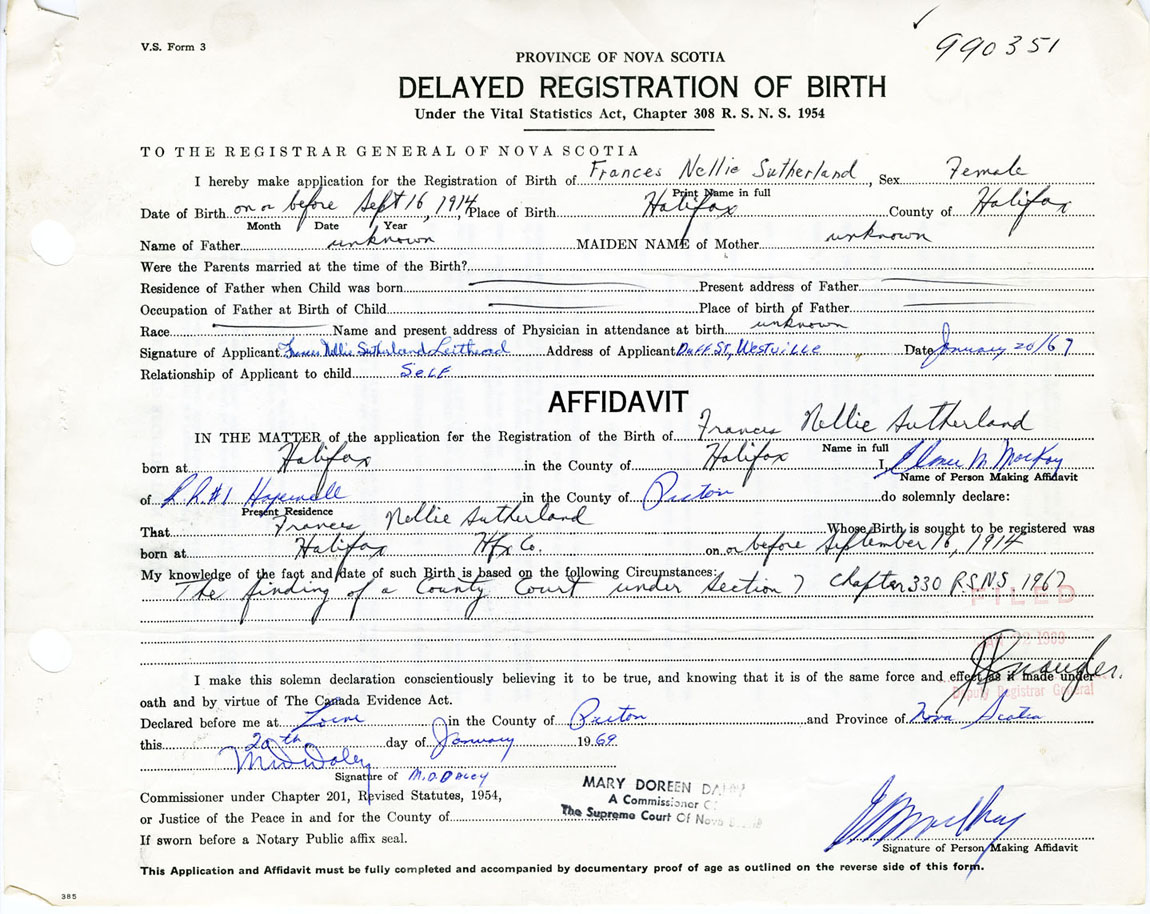 V.S. Form 3
990351
PROVINCE OF NOVA SCOTIA
DELAYED REGISTRATION OF BIRTH
Under the Vital Statistics Act, Chapter 308 R. S. N. S. 1954
TO THE REGISTRAR GENERAL OF NOVA SCOTIA
I hereby make application for the Registration of Birth of Frances Nellie Sutherland, Sex Female
Print Name in full
Date of Birth on or before Sept 16, 1914, Place of Birth Halifax County of Halifax
Month Date Year
Name of Father unknown MAIDEN NAME of Mother unknown
Were the Parents married at the time of the Birth?
Residence of Father when Child was born Present address of Father
Occupation of Father at Birth of Child Place of birth of Father
Race Name and present address of Physician in attendance at birth unknown
Signature of Applicant Frances Nellie Sutherland Address of Applicant Duff St, Westville Date January 20/69
Relationship of Applicant to child Self
AFFIDAVIT
IN THE MATTER of the application for the Registration of the Birth of Frances Nellie Sutherland
Name in full
born at Halifax in the County of Halifax I, MacKay
Name of Person Making Affidavit
of R.R#1 Hopewell in the County of Pictou do solemnly declare:
Present Residence
That Frances Nellie Sutherland Whose Birth is sought to be registered was
born at Halifax Hfx Co. on or before September 16, 1914
My knowledge of the fact and date of such Birth is based on the following Circumstances:
The finding of a County Court under Section 7 Chapter 330 R.S.N.S. 1967
FILED
1969
I make this solemn declaration conscientiously believing it to be true, and knowing that it is of the same force and effect as if made under
oath and by virtue of The Canada Evidence Act.
Deputy Registrar General
Declared before me at Lorne in the County of Pictou and Province of Nova Scotia
this 20th day of January 1969
M D Daley
Signature of M.D. Daley
MARY DOREEN DALEY
A Commissioner Of
The Supreme Court Of Nova Scotia
Commissioner under Chapter 201, Revised Statutes, 1954,
or Justice of the Peace in and for the County of
If sworn before a Notary Public affix seal.
Signature of Person Making Affidavit
This Application and Affidavit must be fully completed and accompanied by documentary proof of age as outlined on the reverse side of this form.
385